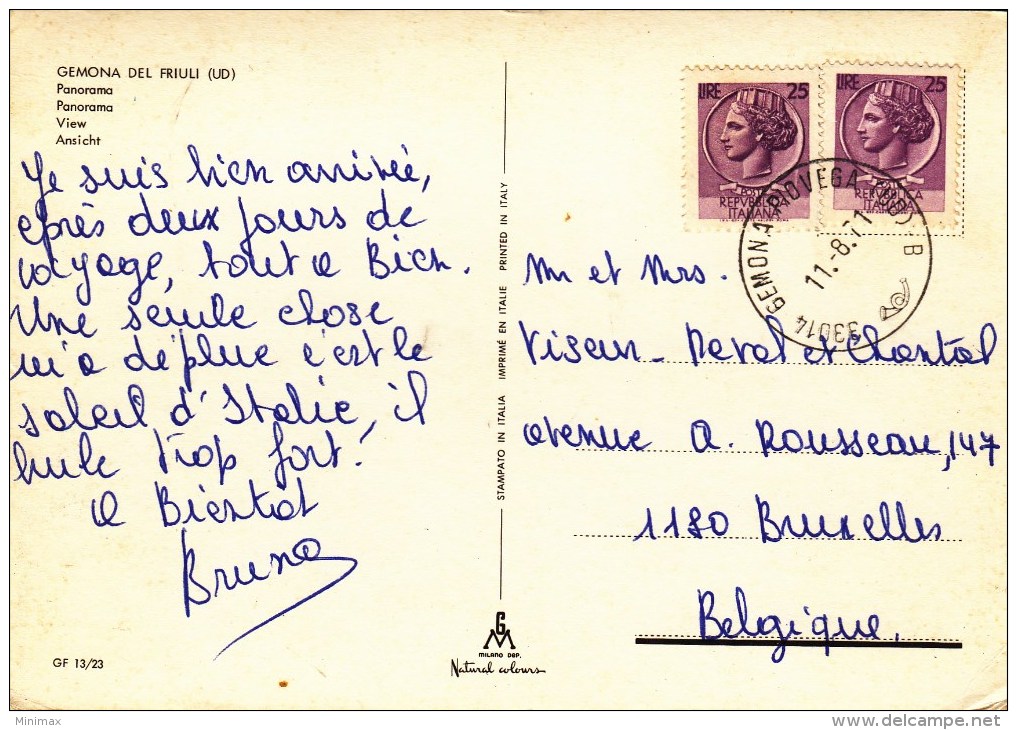 GEMONA DEL FRIULI (UD)
Panorama
Panorama
View
Ansicht
Je suis bien arrivée,
après deux jours de
voyage, tout a Bien.
Une seule chose
m'a déplue c'est le
soleil d'Italie, il
brule trop fort!
A Bientot
Bruna
GF 13/23
STAMPATO IN ITALIA IMPRIMÉ EN ITALIE PRINTED IN ITALY
GM
MILANO DEP.
Natural colours
LIRE 25
POSTE
REPVBBLICA
ITALIANA
LIRE 25
POSTE
REPVBBLICA
ITALIANA
33014 GEMONA PIOVEGA (UD) - B
11.-8.71
Mr et Mrs.
Viseur - Deval et Chantal
avenue A. Rousseau, 147
1180 Bruxelles
Belgique.
Minimax
www.delcampe.net